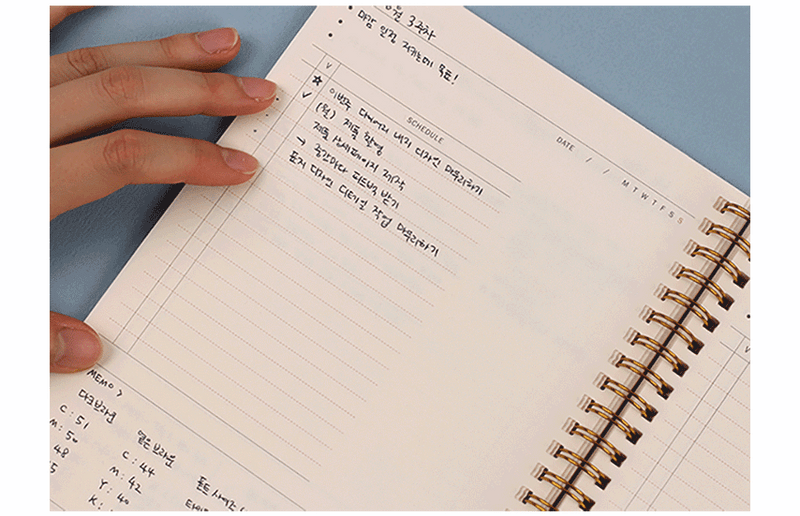 3주차
• 마감 일정 지키는게 목표!
•
•
DATE / / M T W T F S S
SCHEDULE
V
★ 이번주 다이어리 내지 디자인 마무리하기
✓ (월) 제품 촬영
• 제품 상세페이지 제작
→ 중간마다 피드백 받기
• 표지 디자인 디테일 작업 마무리하기
MEMO >
다크브라운
C : 51
M : 50
48
5
옅은브라운
C : 44
M : 42
Y : 40
K :
폰트 사이즈
V